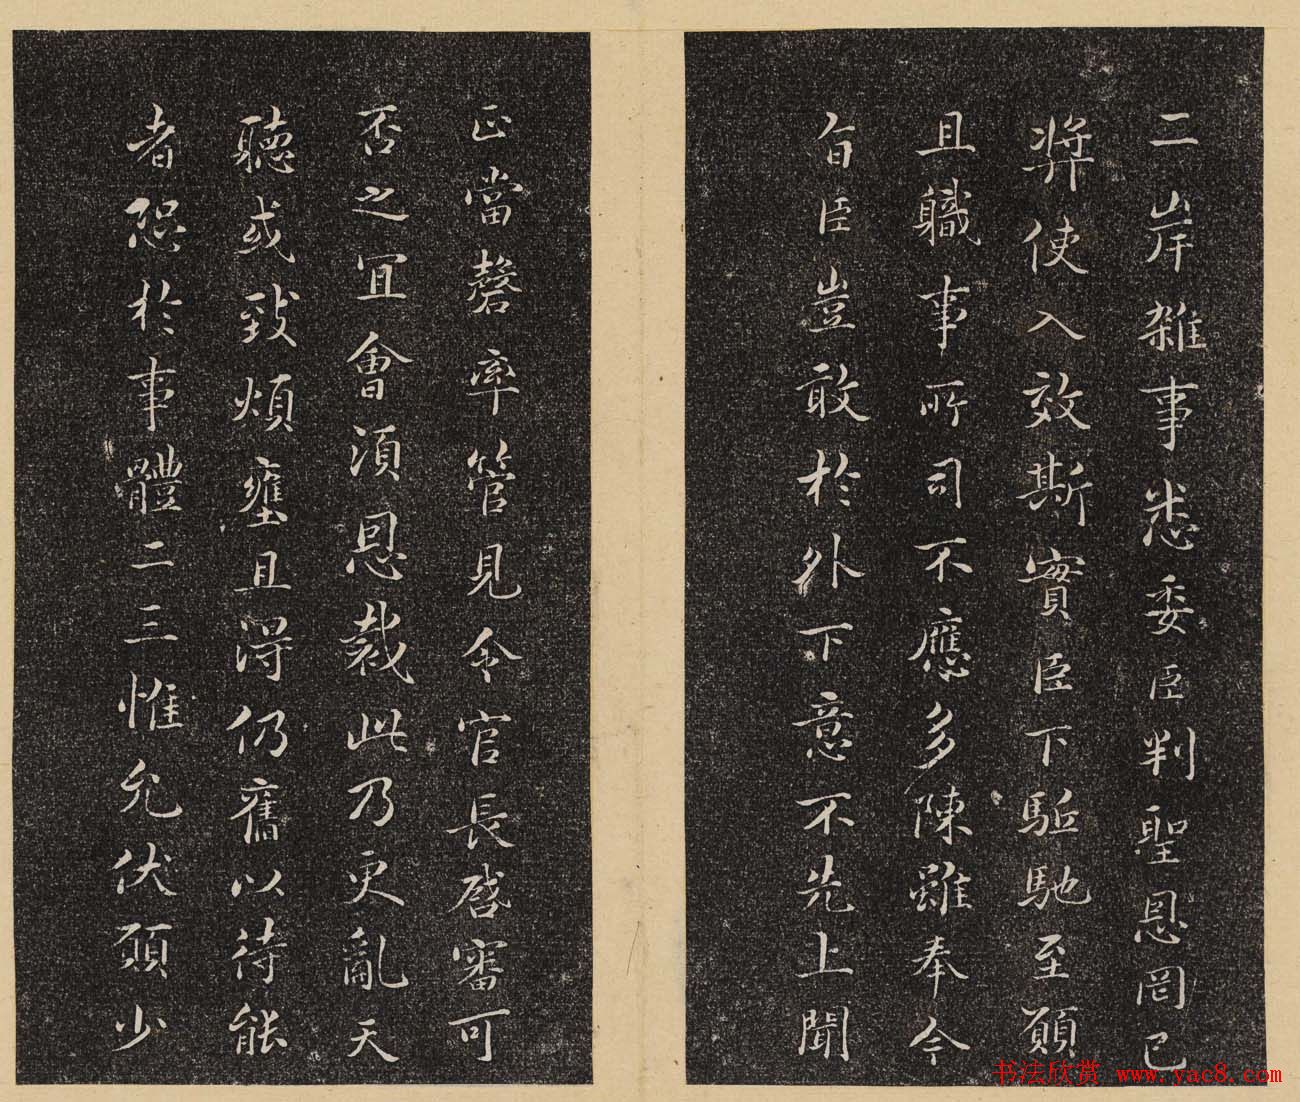 二岸雜事悉委臣判聖恩罔已
奬使入效斯實臣下驅馳至願
且職事所司不應多陳雖奉今
旨臣豈敢於外下意不先上聞
正當罄率管見令官長啓審可
否之宜會須恩裁此乃更亂天
聽或致煩壅且得仍舊以待能
者恐於事體二三惟允伏願少
书法欣赏 www.yac8.com